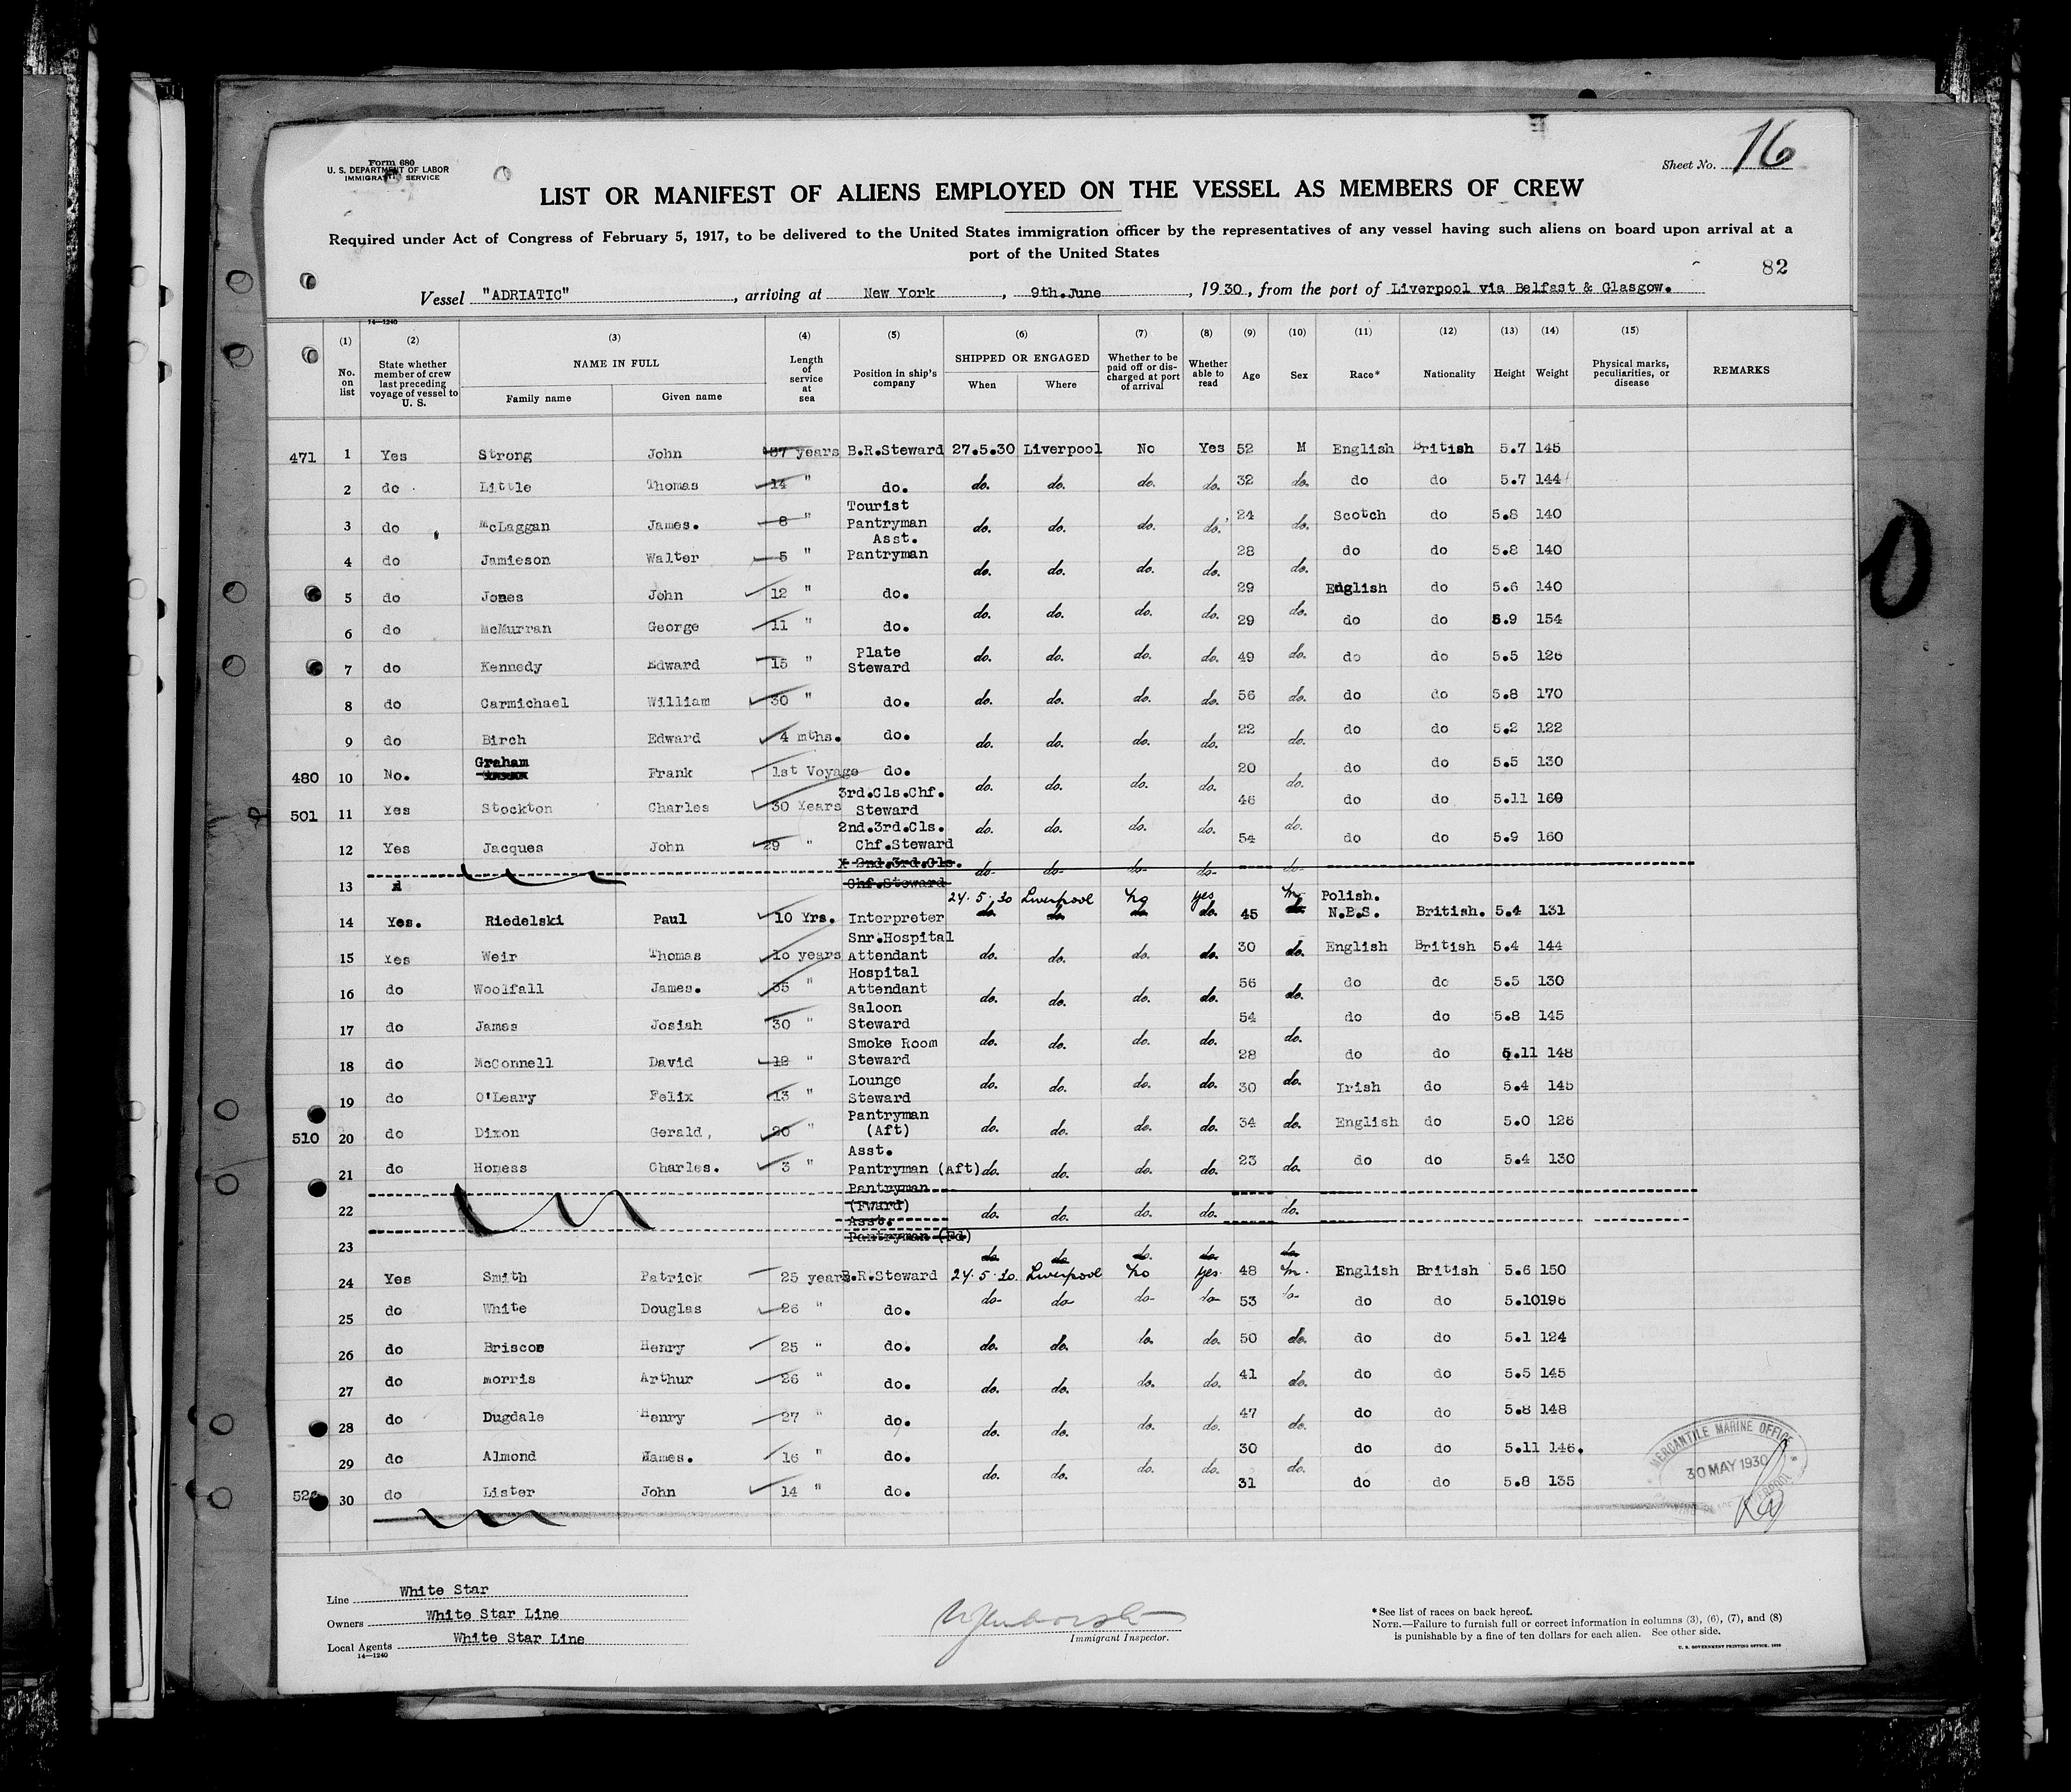 Form 680
U. S. DEPARTMENT OF LABOR
IMMIGRATION SERVICE
Sheet No. 16
LIST OR MANIFEST OF ALIENS EMPLOYED ON THE VESSEL AS MEMBERS OF CREW
Required under Act of Congress of February 5, 1917, to be delivered to the United States immigration officer by the representatives of any vessel having such aliens on board upon arrival at a
port of the United States
82
Vessel "ADRIATIC", arriving at New York, 9th.June, 1930, from the port of Liverpool via Belfast & Glasgow.
14—1240
(1) (2) (3) (4) (5) (6) (7) (8) (9) (10) (11) (12) (13) (14) (15)
No. on list State whether member of crew last preceding voyage of vessel to U. S. NAME IN FULL Family name Given name Length of service at sea Position in ship's company SHIPPED OR ENGAGED When Where Whether to be paid off or discharged at port of arrival Whether able to read Age Sex Race* Nationality Height Weight Physical marks, peculiarities, or disease REMARKS
471 1 Yes Strong John 37 years B.R.Steward 27.5.30 Liverpool No Yes 52 M English British 5.7 145
2 do Little Thomas 14 " do. do. do. do. do. 32 do. do do 5.7 144
3 do McLaggan James. 8 " Tourist Pantryman do. do. do. do. 24 do. Scotch do 5.8 140
4 do Jamieson Walter 5 " Asst. Pantryman do. do. do. do. 28 do. do do 5.8 140
5 do Jones John 12 " do. do. do. do. do. 29 do. English do 5.6 140
6 do McMurran George 11 " do. do. do. do. do. 29 do. do do 5.9 154
7 do Kennedy Edward 15 " Plate Steward do. do. do. do. 49 do. do do 5.5 126
8 do Carmichael William 30 " do. do. do. do. do. 56 do. do do 5.8 170
9 do Birch Edward 4 mths. do. do. do. do. do. 22 do. do do 5.2 122
480 10 No. Graham Frank 1st Voyage do. do. do. do. do. 20 do. do do 5.5 130
501 11 Yes Stockton Charles 30 Years 3rd.Cls.Chf. Steward do. do. do. do. 46 do. do do 5.11 160
12 Yes Jacques John 29 " 2nd.3rd.Cls. Chf.Steward do. do. do. do. 54 do. do do 5.9 160
13 2nd.3rd.Cls. Chf.Steward
14 Yes. Riedelski Paul 10 Yrs. Interpreter 24.5.30 Liverpool No yes 45 M Polish. N.B.S. British. 5.4 131
15 Yes Weir Thomas 10 years Snr.Hospital Attendant do. do. do. do. 30 do. English British 5.4 144
16 do Woolfall James. 35 " Hospital Attendant do. do. do. do. 56 do. do do 5.5 130
17 do James Josiah 30 " Saloon Steward do. do. do. do. 54 do. do do 5.8 145
18 do McConnell David 12 " Smoke Room Steward do. do. do. do. 28 do. do do 5.11 148
19 do O'Leary Felix 13 " Lounge Steward do. do. do. do. 30 do. Irish do 5.4 145
510 20 do Dixon Gerald, 20 " Pantryman (Aft) do. do. do. do. 34 do. English do 5.0 126
21 do Honess Charles. 3 " Asst. Pantryman (Aft) do. do. do. do. 23 do. do do 5.4 130
22 Pantryman (Fward) do. do. do. do. do.
23 Asst. Pantryman (Fd) do. do. do. do. do.
24 Yes Smith Patrick 25 years B.R.Steward 24.5.30. Liverpool No yes 48 M. English British 5.6 150
25 do White Douglas 26 " do. do do do do 53 do do do 5.10 196
26 do Briscoe Henry 25 " do. do. do. do. do. 50 do. do do 5.1 124
27 do morris Arthur 26 " do. do. do. do. do. 41 do. do do 5.5 145
28 do Dugdale Henry 27 " do. do. do. do. do. 47 do. do do 5.8 148
29 do Almond Mames. 16 " do. do. do. do. do. 30 do. do do 5.11 146.
30 do Lister John 14 " do. 31 do do 5.8 135
MERCANTILE MARINE OFFICE
30 MAY 1930
Line White Star
Owners White Star Line
Local Agents White Star Line
14—1240
Immigrant Inspector.
*See list of races on back hereof.
NOTE.—Failure to furnish full or correct information in columns (3), (6), (7), and (8)
is punishable by a fine of ten dollars for each alien. See other side.